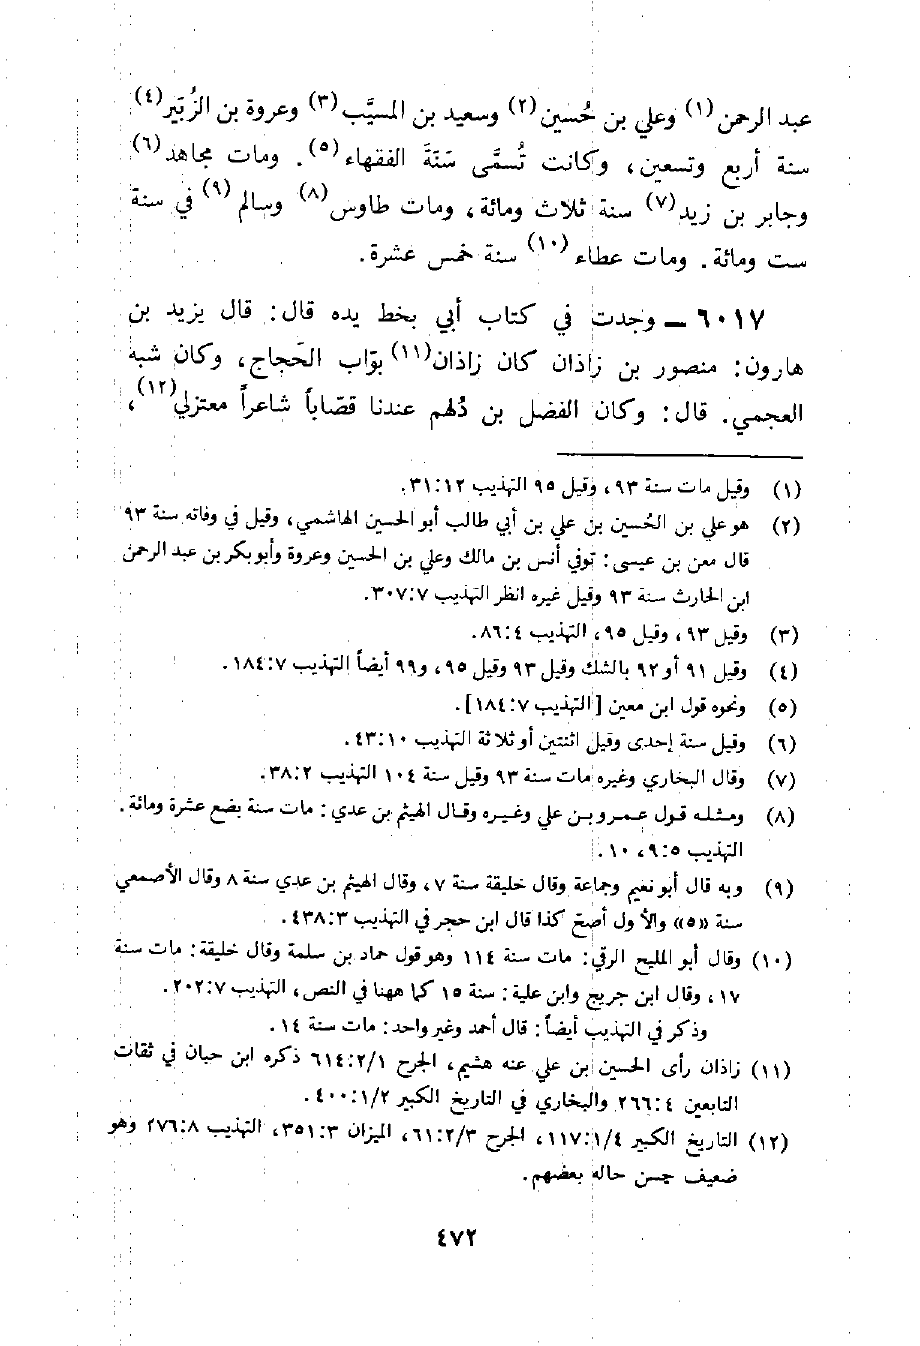 عبد الرحمن(١) وعلي بن حُسين(٢) وسعيد بن المسيَّب(٣) وعروة بن الزُبَير(٤)
سنة أربع وتسعين، وكانت تُسمَّى سَنَةَ الفقهاء(٥). ومات مجاهد(٦)
وجابر بن زيد(٧) سنة ثلاث ومائة، ومات طاوس(٨) وسالم(٩) في سنة
ست ومائة. ومات عطاء(١٠) سنة خمس عشرة.
٦٠١٧ ــ وجدت في كتاب أبي بخط يده قال: قال يزيد بن
هارون: منصور بن زاذان كان زاذان(١١) بوّاب الحَجاج، وكان شبهَ
العجمي. قال: وكان الفضل بن دَلهم عندنا قصّاباً شاعراً معتزلي(١٢)،
(١) وقيل مات سنة ٩٣، وقيل ٩٥ التهذيب ٣١:١٢.
(٢) هو علي بن الحُسين بن علي بن أبي طالب أبو الحسين الهاشمي، وقيل في وفاته سنة ٩٣
قال معن بن عيسى: توفي أنس بن مالك وعلي بن الحسين وعروة وأبو بكر بن عبد الرحمن
ابن الحارث سنة ٩٣ وقيل غيره انظر التهذيب ٣٠٧:٧.
(٣) وقيل ٩٣، وقيل ٩٥، التهذيب ٨٦:٤.
(٤) وقيل ٩١ أو ٩٢ بالشك وقيل ٩٣ وقيل ٩٥، و٩٩ أيضاً التهذيب ١٨٤:٧.
(٥) ونحوه قول ابن معين [التهذيب ١٨٤:٧].
(٦) وقيل سنة إحدى وقيل اثنتين أو ثلاثة التهذيب ٤٣:١٠.
(٧) وقال البخاري وغيره مات سنة ٩٣ وقيل سنة ١٠٤ التهذيب ٣٨:٢.
(٨) ومثله قول عمرو بن علي وغيره وقال الهيثم بن عدي: مات سنة بضع عشرة ومائة.
التهذيب ٩:٥، ١٠.
(٩) وبه قال أبو نعيم وجماعة وقال خليفة سنة ٧، وقال الهيثم بن عدي سنة ٨ وقال الأصمعي
سنة «٥» والأول أصحّ كذا قال ابن حجر في التهذيب ٤٣٨:٣.
(١٠) وقال أبو المليح الرقي: مات سنة ١١٤ وهو قول حماد بن سلمة وقال خليفة: مات سنة
١٧، وقال ابن جريج وابن علية: سنة ١٥ كما ههنا في النص، التهذيب ٢٠٢:٧.
وذكر في التهذيب أيضاً: قال أحمد وغير واحد: مات سنة ١٤.
(١١) زاذان رأى الحسين بن علي عنه هشيم، الجرح ٦١٤:٢/١ ذكره ابن حبان في ثقات
التابعين ٢٦٦:٤ والبخاري في التاريخ الكبير ٤٠٠:١/٢.
(١٢) التاريخ الكبير ١١٧:١/٤، الجرح ٦١:٢/٣، الميزان ٣٥١:٣، التهذيب ٢٧٦:٨ وهو
ضعيف حسن حاله بعضهم.
٤٧٢